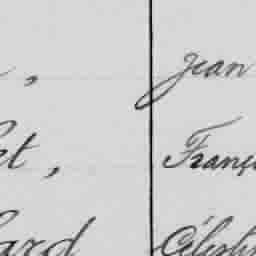 , Jean
et, Franç
ard Célest